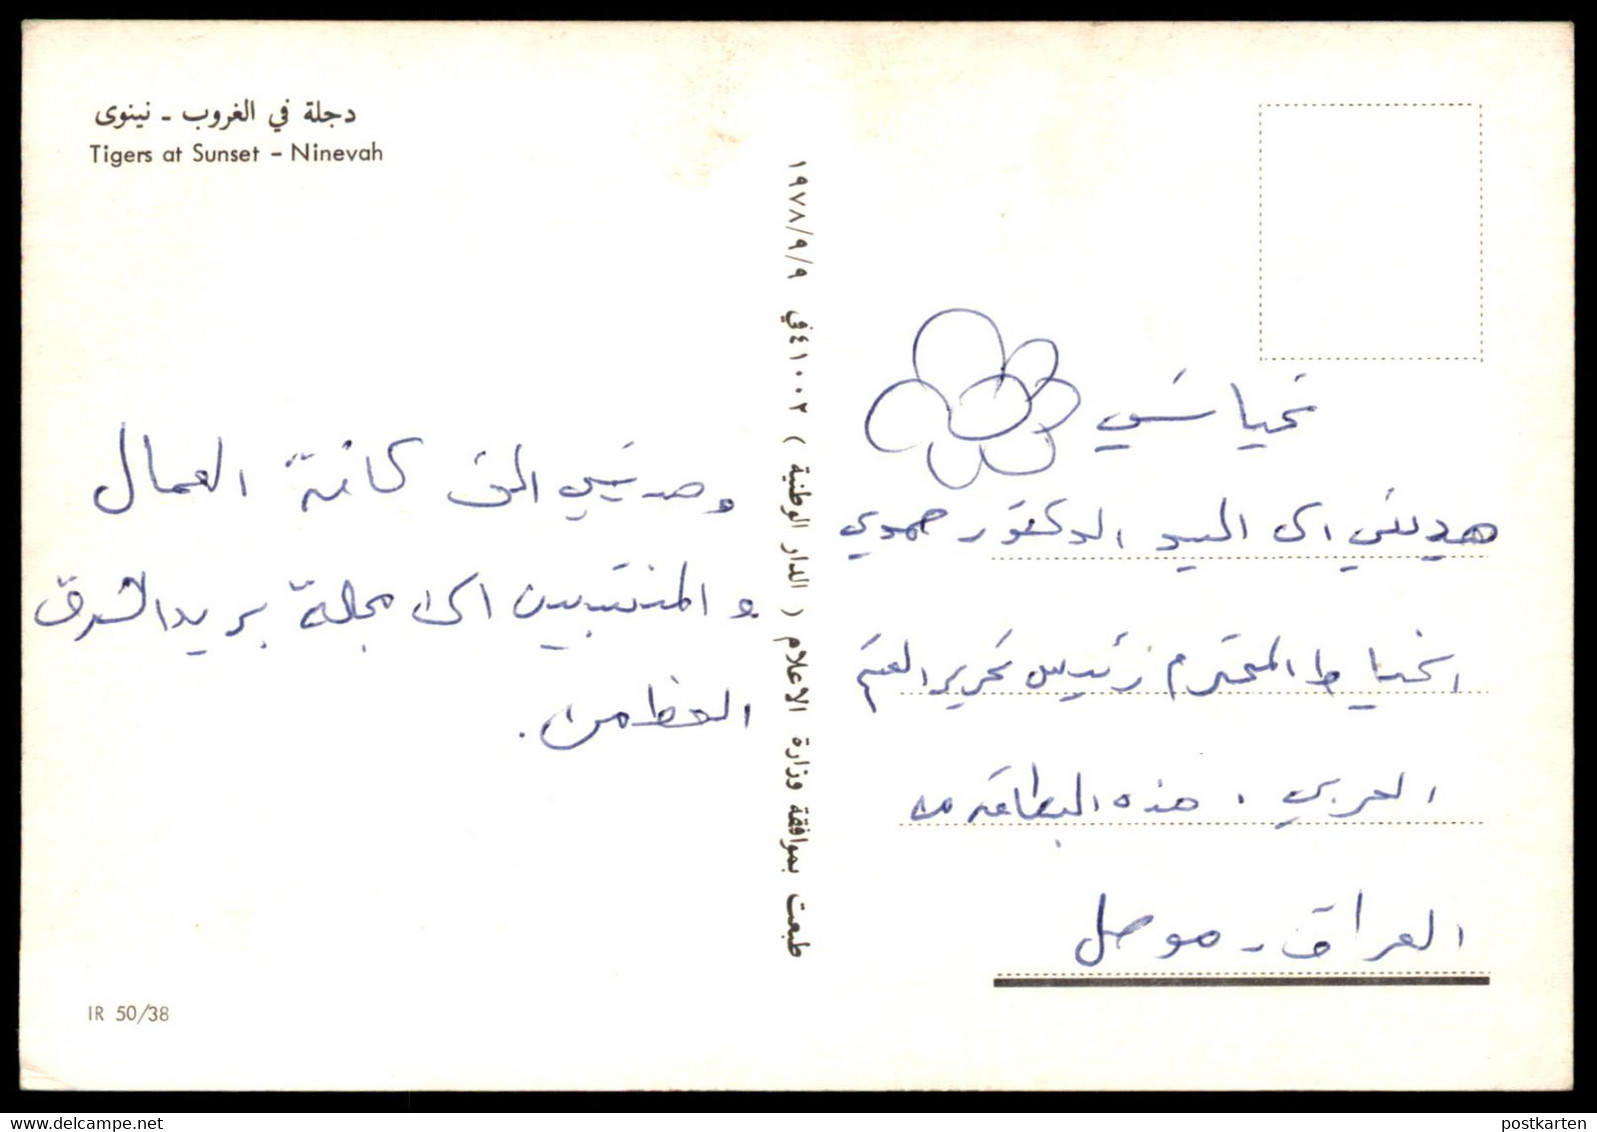 دجلة في الغروب - نينوى
Tigers at Sunset - Ninevah
تحياتي
هديتي الى السيد الدكتور حمودي
الخياط المحترم رئيس تحرير القسم
العربي . هذه البطاقة من
العراق - موصل
وهديتي الى كافة العمال
و المنتسبين الى مجلة بريد الشرق
العظمى .
طبعت بموافقة وزارة الاعلام ( الدار الوطنية ) ٤١٠٠٢ في ١٩٧٨/٩/٩
IR 50/38
postkarten